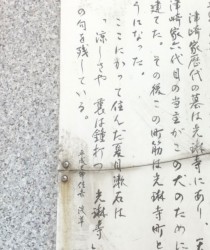 津崎家歴代の墓は光琳寺にあり、
津崎家六代目の当主がこの犬のために
建てた。その後この町筋は光琳寺町と
うになった。
ここにかつて住んだ夏目漱石は
「涼しさや 裏は鐘打つ 光琳寺」
の句を残している。